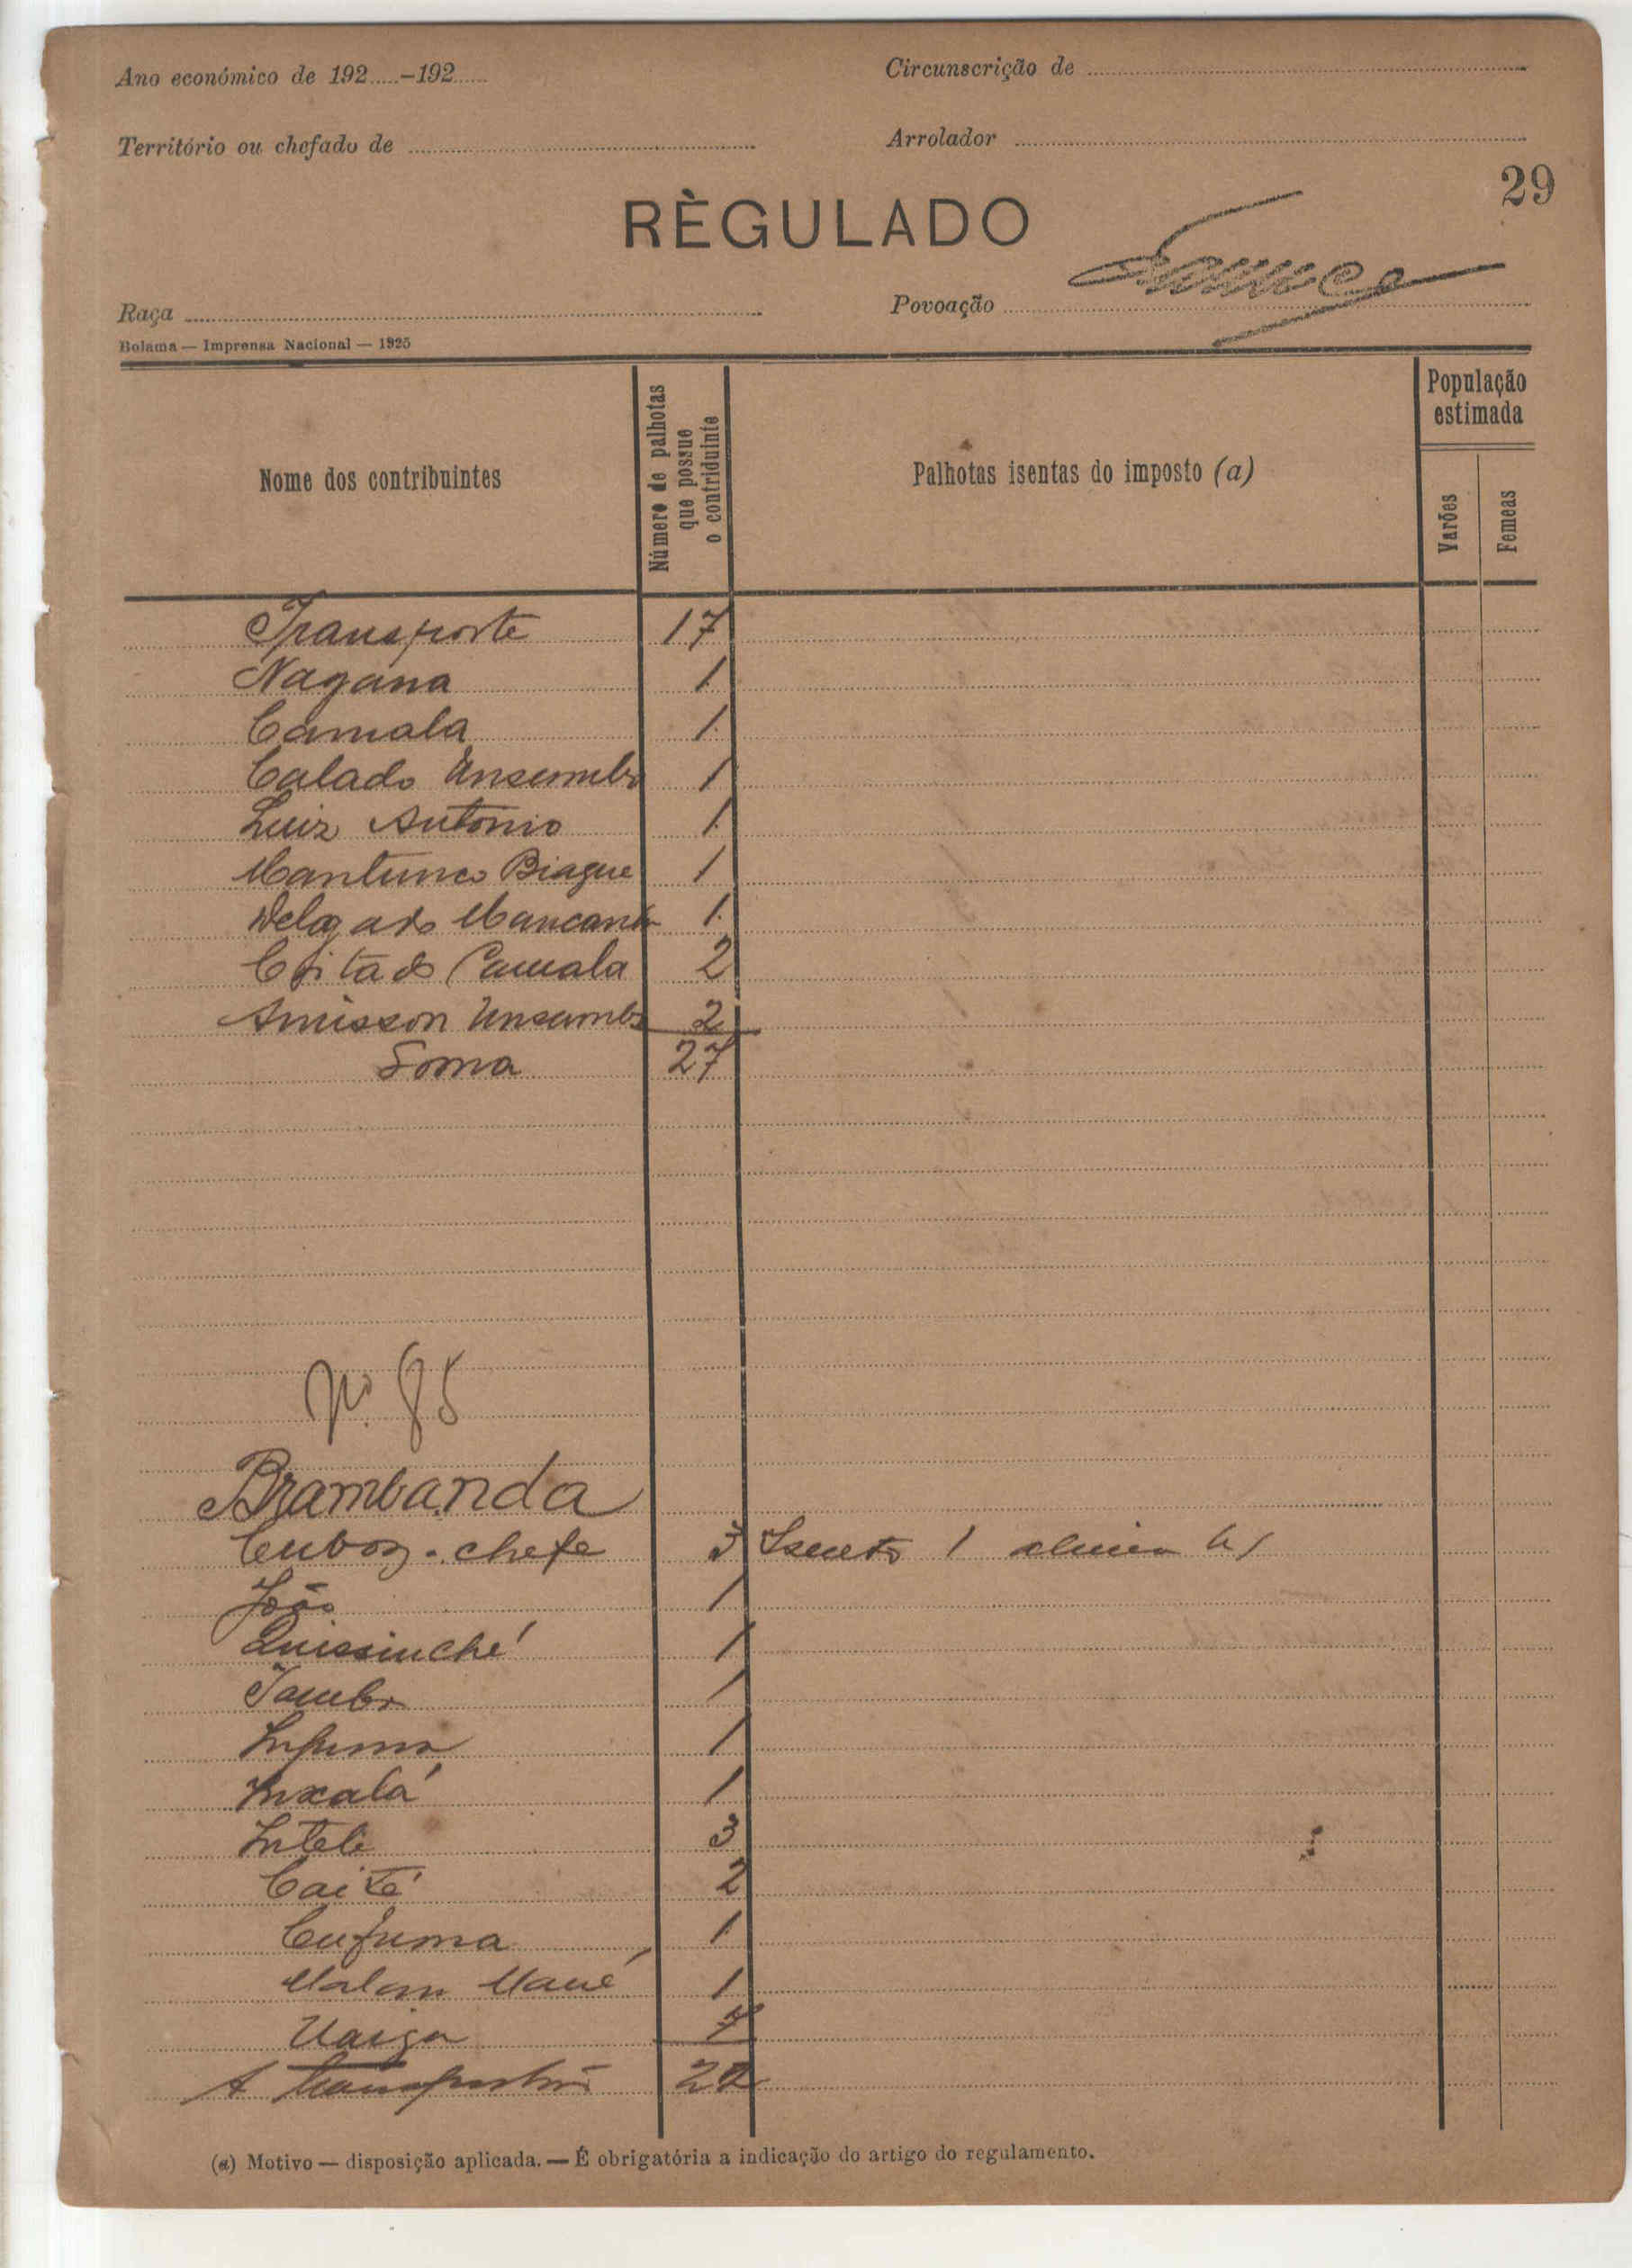 Ano económico de 192.....-192.....
Circunscrição de
Território ou chefado de
Arrolador
29
RÈGULADO
Raça
Povoação
Bolama — Imprensa Nacional — 1925
Nome dos contribuintes
Número de palhotas que possue o contriduinte
Palhotas isentas do imposto (a)
População estimada
Varões
Femeas
Transporte 17
Nagana 1
Camala 1
Calado Unsumbo 1
Luiz Antonio 1
Mantunco Biague 1
Delogado 1
Camala 2
Amisson Unsumbo 2
Soma 27
Nº 85
Brambanda
chefe 3 Isento 1 alinea a)
João 1
Quissinché 1
Tambo 1
Infuma 1
Inxalá 1
Inteli 3
Caité 2
Cufuma 1
Malam Mané 1
7
A transportar 22
(a) Motivo — disposição aplicada. — É obrigatória a indicação do artigo do regulamento.